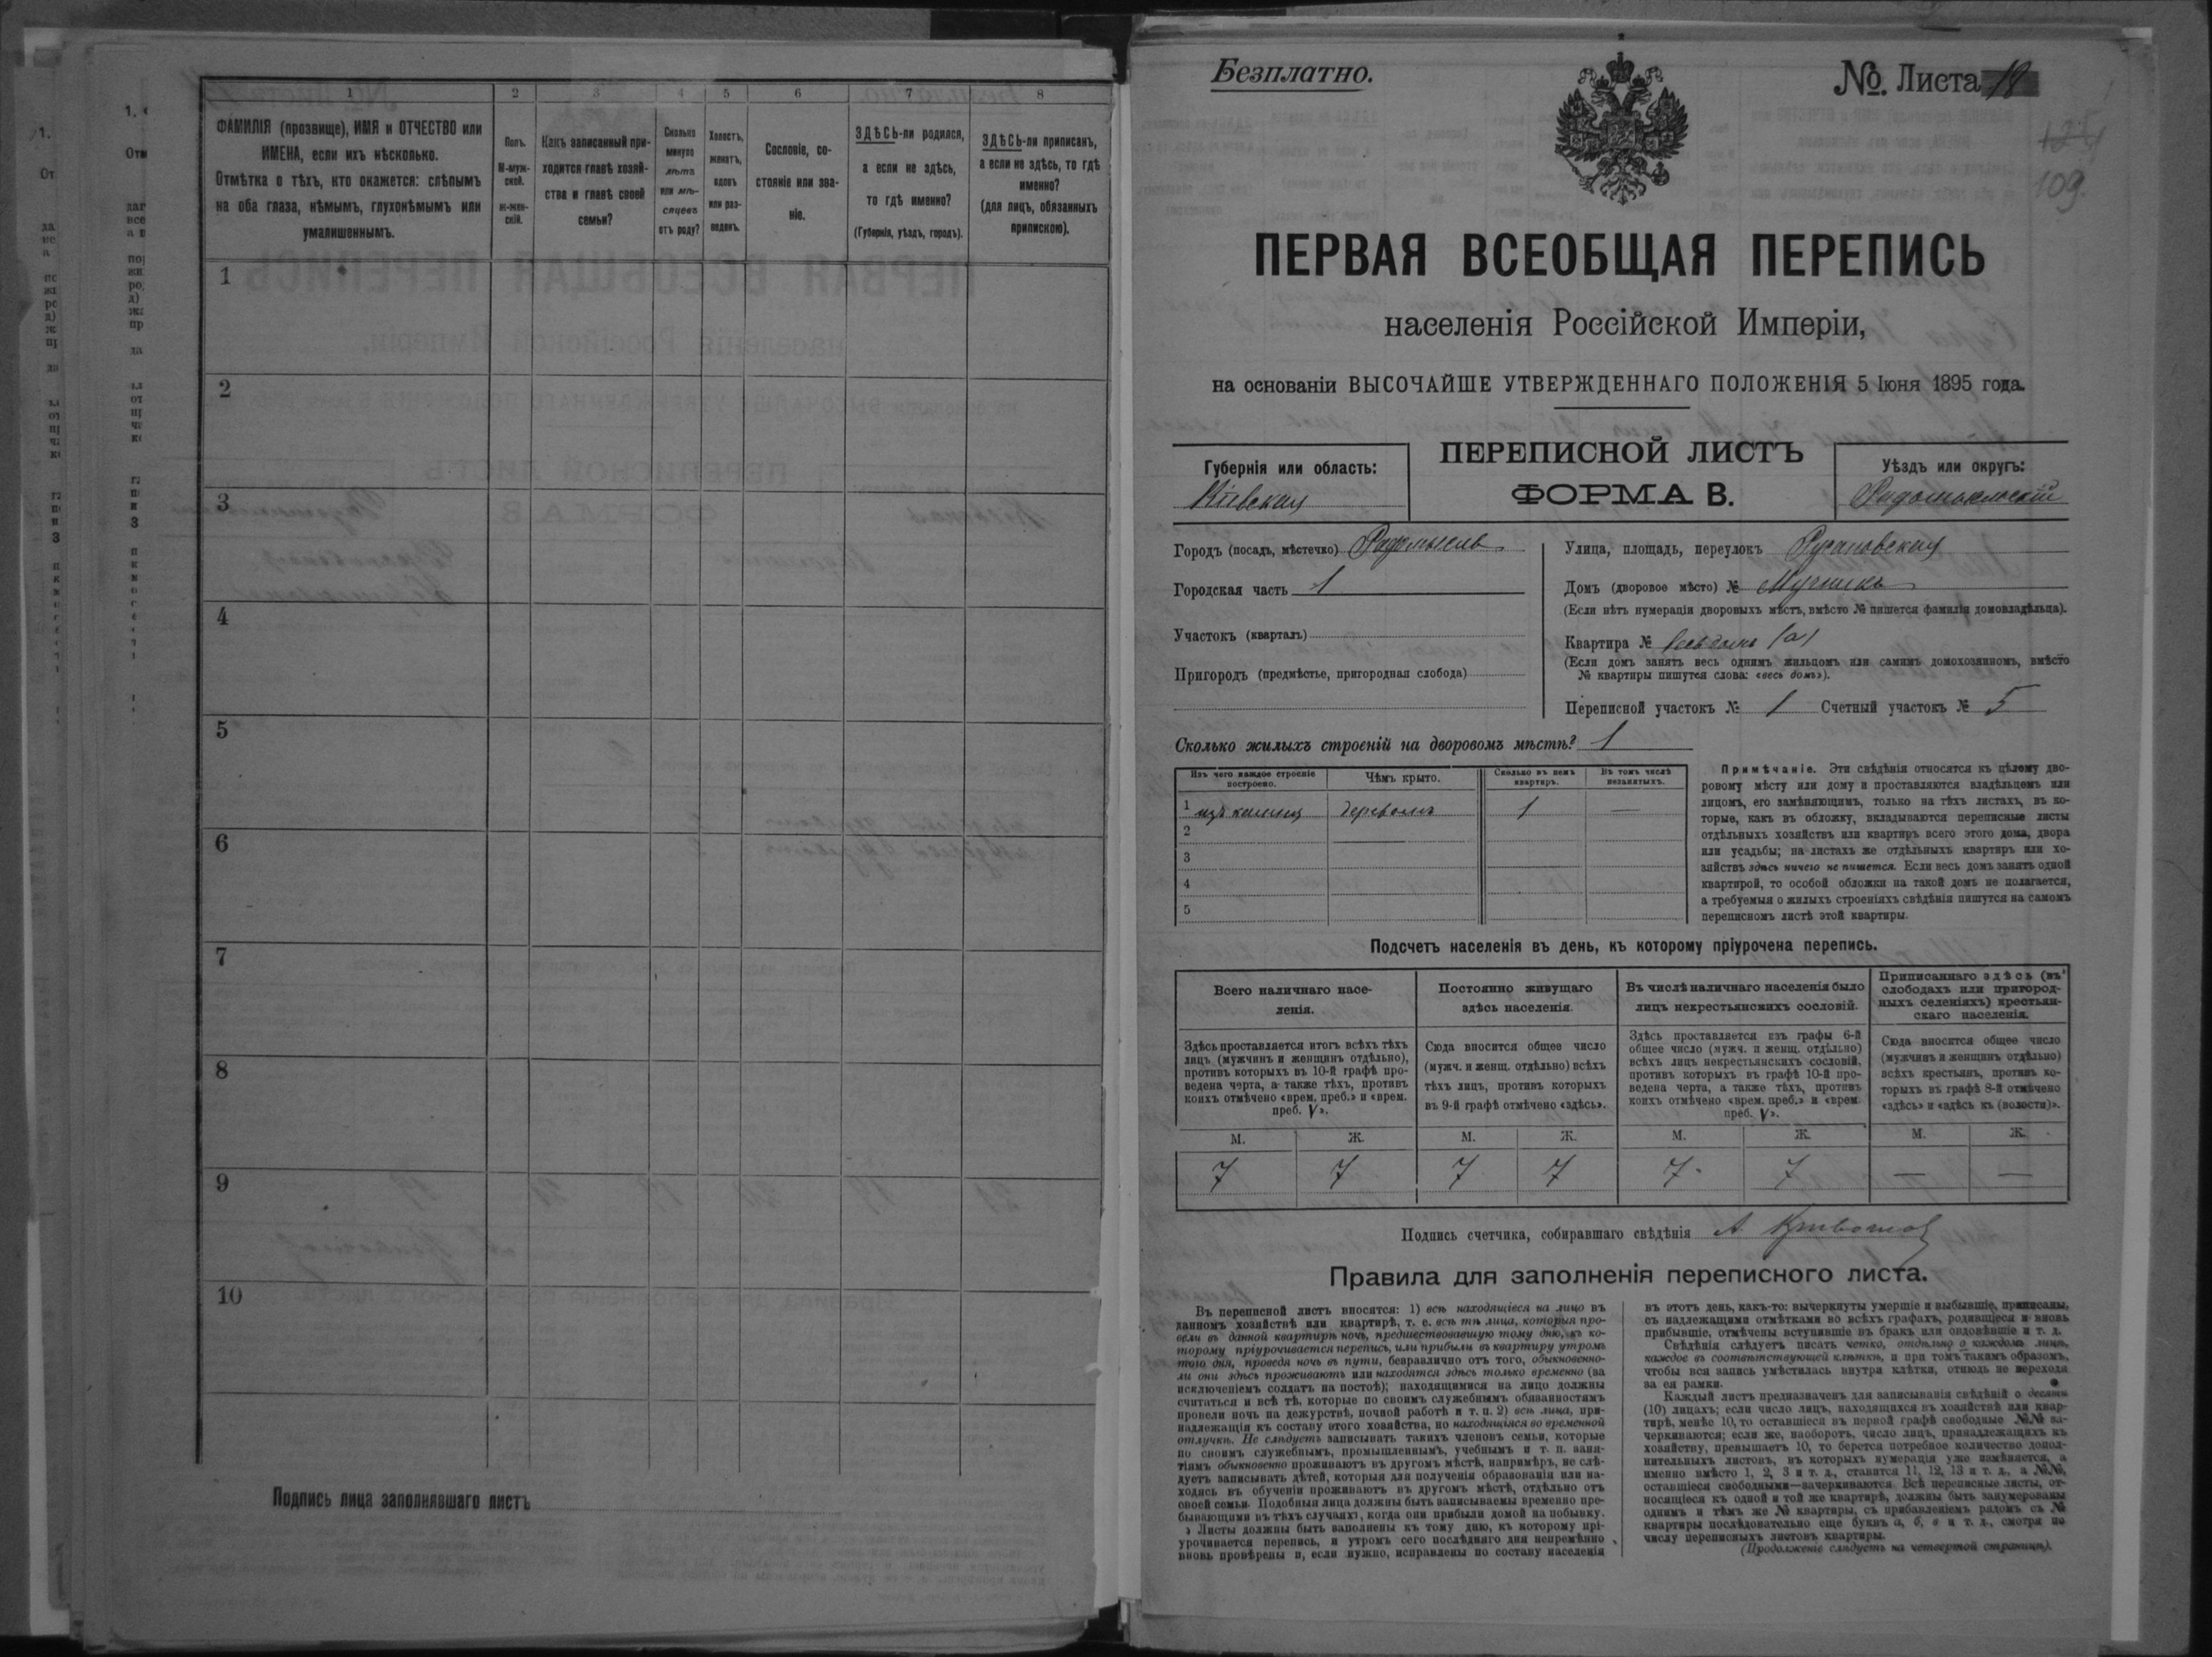 1 2 3 4 5 6 7 8
ФАМИЛІЯ (прозвище), ИМЯ и ОТЧЕСТВО или
ИМЕНА, если ихъ нѣсколько.
Отмѣтка о тѣхъ, кто окажется: слѣпымъ
на оба глаза, нѣмымъ, глухонѣмымъ или
умалишеннымъ.
Полъ.
М-муж-
ской.
ж-жен-
скій.
Какъ записанный при-
ходится главѣ хозяй-
ства и главѣ своей
семьи?
Сколько
минуло
лѣтъ
или мѣ-
сяцевъ
отъ роду?
Холостъ,
женатъ,
вдовъ
или раз-
веденъ.
Сословіе, со-
стояніе или зва-
ніе.
ЗДѢСЬ-ли родился,
а если не здѣсь,
то гдѣ именно?
(Губернія, уѣздъ, городъ).
ЗДѢСЬ-ли приписанъ,
а если не здѣсь, то гдѣ
именно?
(для лицъ, обязанныхъ
припискою).
1
2
3
4
5
6
7
8
9
10
Подпись лица заполнявшаго листъ
Безплатно.
№. Листа 18
109.
ПЕРВАЯ ВСЕОБЩАЯ ПЕРЕПИСЬ
населенія Россійской Имперіи,
на основаніи ВЫСОЧАЙШЕ УТВЕРЖДЕННАГО ПОЛОЖЕНІЯ 5 Іюня 1895 года.
ПЕРЕПИСНОЙ ЛИСТЪ
ФОРМА В.
Губернія или область:
Кіевская
Уѣздъ или округъ:
Радомысльскій
Городъ (посадъ, мѣстечко) Радомысль
Городская часть 1
Участокъ (кварталъ)
Пригородъ (предмѣстье, пригородная слобода)
Улица, площадь, переулокъ Русановская
Домъ (дворовое мѣсто) № Мучникъ
(Если нѣтъ нумераціи дворовыхъ мѣстъ, вмѣсто № пишется фамилія домовладѣльца).
Квартира № весь домъ (а)
(Если домъ занятъ весь однимъ жильцомъ или самимъ домохозяиномъ, вмѣсто
№ квартиры пишутся слова: «весь домъ»).
Переписной участокъ № 1 Счетный участокъ № 5
Сколько жилыхъ строеній на дворовомъ мѣстѣ? 1
Изъ чего каждое строеніе
построено.
Чѣмъ крыто.
Сколько въ немъ
квартиръ.
Въ томъ числѣ
незанятыхъ.
1 изъ камня деревомъ 1 —
2
3
4
5
Примѣчаніе. Эти свѣдѣнія относятся къ цѣлому дво-
ровому мѣсту или дому и проставляются владѣльцемъ или
лицомъ, его замѣняющимъ, только на тѣхъ листахъ, въ ко-
торые, какъ въ обложку, вкладываются переписные листы
отдѣльныхъ хозяйствъ или квартиръ всего этого дома, двора
или усадьбы; на листахъ же отдѣльныхъ квартиръ или хо-
зяйствъ здѣсь ничего не пишется. Если весь домъ занятъ одной
квартирой, то особой обложки на такой домъ не полагается,
а требуемыя о жилыхъ строеніяхъ свѣдѣнія пишутся на самомъ
переписномъ листѣ этой квартиры.
Подсчетъ населенія въ день, къ которому пріурочена перепись.
Всего наличнаго насе-
ленія.
Постоянно живущаго
здѣсь населенія.
Въ числѣ наличнаго населенія было
лицъ некрестьянскихъ сословій.
Приписаннаго здѣсь (въ
слободахъ или пригород-
ныхъ селеніяхъ) крестьян-
скаго населенія.
Здѣсь проставляется итогъ всѣхъ тѣхъ
лицъ (мужчинъ и женщинъ отдѣльно),
противъ которыхъ въ 10-й графѣ про-
ведена черта, а также тѣхъ, противъ
коихъ отмѣчено «врем. преб.» и «врем.
преб. V».
Сюда вносится общее число
(мужч. и женщ. отдѣльно) всѣхъ
тѣхъ лицъ, противъ которыхъ
въ 9-й графѣ отмѣчено «здѣсь».
Здѣсь проставляется изъ графы 6-й
общее число (мужч. и женщ. отдѣльно)
всѣхъ лицъ некрестьянскихъ сословій,
противъ которыхъ въ графѣ 10-й про-
ведена черта, а также тѣхъ, противъ
коихъ отмѣчено «врем. преб.» и «врем.
преб. V».
Сюда вносится общее число
(мужчинъ и женщинъ отдѣльно)
всѣхъ крестьянъ, противъ ко-
торыхъ въ графѣ 8-й отмѣчено
«здѣсь» и «здѣсь къ (волости)».
М. Ж. М. Ж. М. Ж. М. Ж.
7 7 7 7 7 7 — —
Подпись счетчика, собиравшаго свѣдѣнія А
Правила для заполненія переписного листа.
Въ переписной листъ вносятся: 1) всѣ находящіеся на лицо въ
данномъ хозяйствѣ или квартирѣ, т. е. всѣ тѣ лица, которыя про-
вели въ данной квартирѣ ночь, предшествовавшую тому дню, къ ко-
торому пріурочивается перепись, или прибыли въ квартиру утромъ
того дня, проведя ночь въ пути, безразлично отъ того, обыкновенно-
ли они здѣсь проживаютъ или находятся здѣсь только временно (за
исключеніемъ солдатъ на постоѣ); находящимися на лицо должны
считаться и всѣ тѣ, которые по своимъ служебнымъ обязанностямъ
провели ночь на дежурствѣ, ночной работѣ и т. п. 2) всѣ лица, при-
надлежащія къ составу этого хозяйства, но находящіяся во временной
отлучкѣ. Не слѣдуетъ записывать такихъ членовъ семьи, которые
по своимъ служебнымъ, промышленнымъ, учебнымъ и т. п. заня-
тіямъ обыкновенно проживаютъ въ другомъ мѣстѣ, напримѣръ, не слѣ-
дуетъ записывать дѣтей, которыя для полученія образованія или на-
ходясь въ обученіи проживаютъ въ другомъ мѣстѣ, отдѣльно отъ
своей семьи. Подобныя лица должны быть записываемы временно пре-
бывающими въ тѣхъ случаяхъ, когда они прибыли домой на побывку.
Листы должны быть заполнены къ тому дню, къ которому прі-
урочивается перепись, и утромъ сего послѣдняго дня непремѣнно
вновь провѣрены и, если нужно, исправлены по составу населенія
въ этотъ день, какъ-то: вычеркнуты умершіе и выбывшіе, приписаны,
съ надлежащими отмѣтками во всѣхъ графахъ, родившіеся и вновь
прибывшіе, отмѣчены вступившіе въ бракъ или овдовѣвшіе и т. д.
Свѣдѣнія слѣдуетъ писать четко, отдѣльно о каждомъ лицѣ,
каждое въ соотвѣтствующей клѣткѣ, и при томъ такимъ образомъ,
чтобы вся запись умѣстилась внутри клѣтки, отнюдь не переходя
за ея рамки.
Каждый листъ предназначенъ для записыванія свѣдѣній о десяти
(10) лицахъ; если число лицъ, находящихся въ хозяйствѣ или квар-
тирѣ, менѣе 10, то оставшіеся въ первой графѣ свободные №№ за-
черкиваются; если же, наоборотъ, число лицъ, принадлежащихъ къ
хозяйству, превышаетъ 10, то берется потребное количество допол-
нительныхъ листовъ, въ которыхъ нумерація уже измѣняется, а
именно вмѣсто 1, 2, 3 и т. д., ставится 11, 12, 13 и т. д., а №№,
оставшіеся свободными—зачеркиваются. Всѣ переписные листы, от-
носящіеся къ одной и той же квартирѣ, должны быть занумерованы
однимъ и тѣмъ же № квартиры, съ прибавленіемъ рядомъ съ №
квартиры послѣдовательно еще буквъ а, б, в и т. д., смотря по
числу переписныхъ листовъ квартиры.
(Продолженіе слѣдуетъ на четвертой страницѣ).